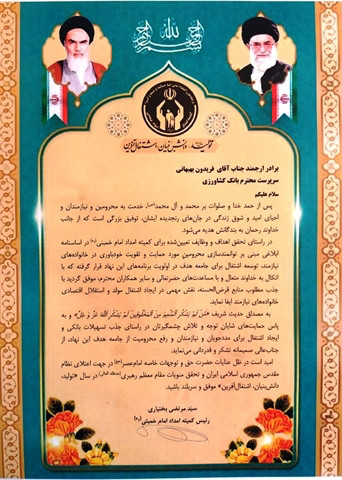 برادر ارجمند جناب آقای فریدون بهبهانی
سرپرست محترم بانک کشاورزی
سلام علیکم
پس از حمد خدا و صلوات بر محمد و آل محمد(ص) خدمت به محرومین و نیازمندان و
احیای امید و شوق زندگی در جان‌های رنجدیده ایشان، توفیق بزرگی است که از جانب
خداوند رحمان به بندگانش هدیه می‌شود.
در راستای تحقق اهداف و وظایف تعیین‌شده برای کمیته امداد امام خمینی(ره) در اساسنامه
ابلاغی مبنی بر توانمندسازی محرومین مورد حمایت و تقویت خودباوری در خانواده‌های
نیازمند، توسعه اشتغال برای جامعه هدف در اولویت برنامه‌های این نهاد قرار گرفته که با
اتکال به خداوند متعال و با مساعدت‌های حضرتعالی و سایر همکاران محترم، موفق گردید با
جذب مطلوب منابع قرض‌الحسنه، نقش مهمی در ایجاد اشتغال مولد و استقلال اقتصادی
خانواده‌های نیازمند ایفا نماید.
به مصداق حدیث شریف «مَن لَم یَشکُرِ المُنعِمَ مِنَ المَخلوقینَ لَم یَشکُرِ اللهَ عَزَّ وَ جَلَّ» و به
پاس حمایت‌های شایان توجه و تلاش چشمگیرتان در راستای جذب تسهیلات بانکی و
ایجاد اشتغال برای مددجویان و نیازمندان و رفع محرومیت از جامعه هدف این نهاد، از
جناب‌عالی صمیمانه تشکر و قدردانی می‌نماید.
امید است در ظل عنایات حضرت حق و توجهات خاصه امام عصر(عج) در جهت اعتلای نظام
مقدس جمهوری اسلامی ایران و تحقق منویات مقام معظم رهبری(مدظله العالی) در سال «تولید،
دانش‌بنیان، اشتغال‌آفرین» موفق و سربلند باشید.
سیّد مرتضی بختیاری
رئیس کمیته امداد امام خمینی(ره)